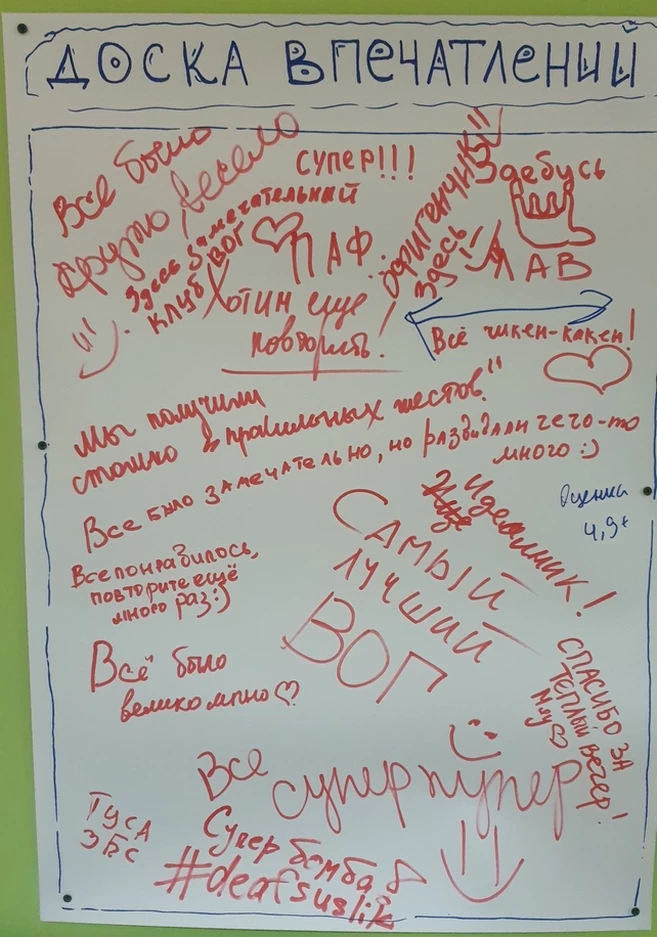 ДОСКА ВПЕЧАТЛЕНИЙ
Все было
круто, весело
СУПЕР!!!
Здесь замечательный
клуб ВОГ
ПАФ
Хотим еще
повторить!
ОФИГЕНЧИК!!
Здесь!
Здебусь
ЛАВ
Всё чикен-какен!
Мы получили
столько "правильных жестов"
Все было замечательно, но раздидали чего-то
много :)
Оценка
4,9+
Идеальник!
Все понравилось,
повторите ещё
много раз:)
САМЫЙ
ЛУЧШИЙ
ВОГ
Всё было
великолепно
СПАСИБО ЗА
ТЕПЛЫЙ ВЕЧЕР!
Мяу
Все
супер пупер
ТУСА
ЭБС
Супер бомба
#deafsuslik